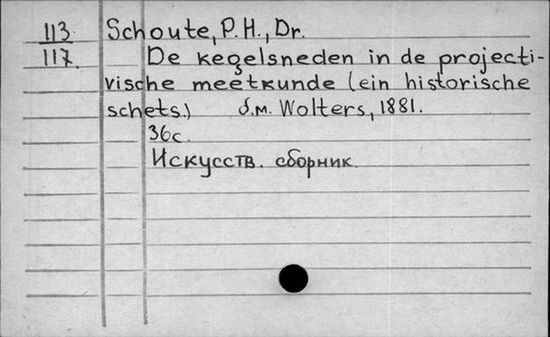 113
117.
Schoute, P.H., Dr.
De kegelsneden in de projecti-
vische meetkunde (ein historische
schets.) б.м. Wolters, 1881.
36с.
Искусств. сборник.